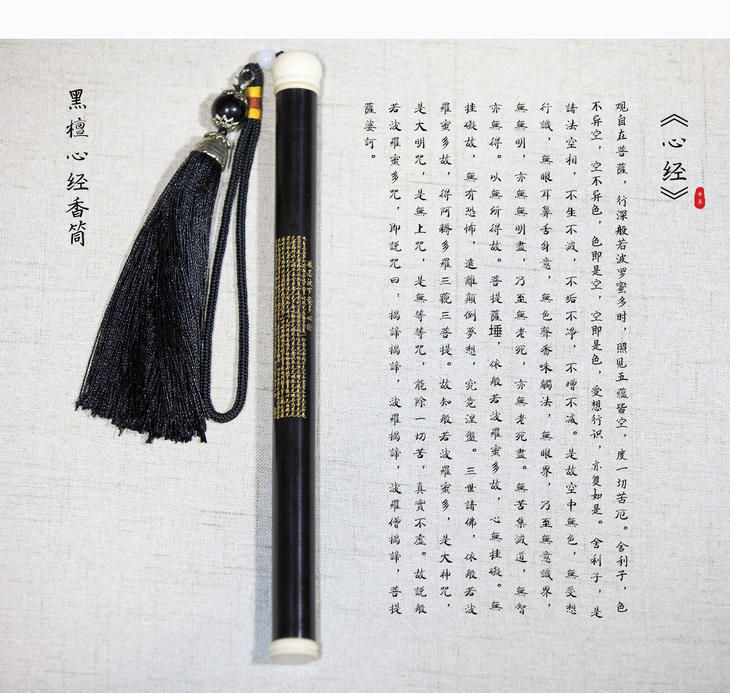 《心经》
观自在菩薩，行深般若波罗蜜多时，照见五蕴皆空，度一切苦厄。舍利子，色
不异空，空不异色，色即是空，空即是色，受想行识，亦复如是。舍利子，是
諸法空相，不生不滅，不垢不净，不增不减。是故空中無色，無受想
行識，無眼耳鼻舌身意，無色聲香味觸法，無眼界，乃至無意識界，
無無明，亦無無明盡，乃至無老死，亦無老死盡。無苦集滅道，無智
亦無得。以無所得故。菩提薩埵，依般若波羅蜜多故，心無挂礙。無
挂礙故，無有恐怖，遠離顛倒夢想，究竟涅盤。三世諸佛，依般若波
羅蜜多故，得阿耨多羅三藐三菩提。故知般若波羅蜜多，是大神咒，
是大明咒，是無上咒，是無等等咒，能除一切苦，真實不虛。故説般
若波羅蜜多咒，即説咒曰：揭諦揭諦，波羅揭諦，波羅僧揭諦，菩提
薩婆訶。
般若波羅蜜多心經
黑檀心经香筒